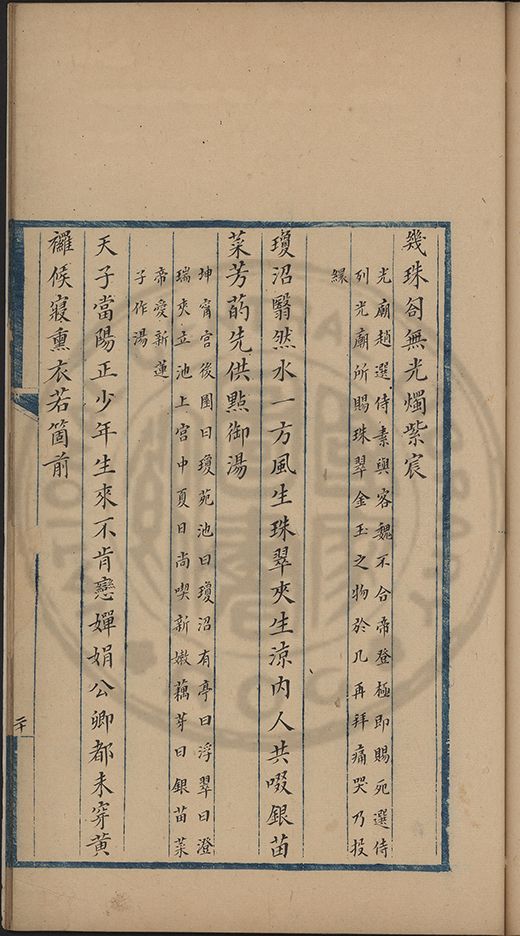 幾珠匌無光燭紫宸
光廟趙選侍素與客魏不合帝登極即賜死選侍
列光廟所賜珠翠金玉之物於几再拜痛哭乃投
繯
瓊沼翳然水一方風生珠翠夾生涼內人共啜銀苗
菜芳菂先供點御湯
坤甯宮後園曰瓊苑池曰瓊沼有亭曰浮翠曰澄
瑞夾立池上宮中夏日尚喫新嫩藕芽曰銀苗菜
帝愛新蓮
子作湯
天子當陽正少年生來不肯戀嬋娟公卿都未穿黃
襬候寢熏衣若箇前
二十